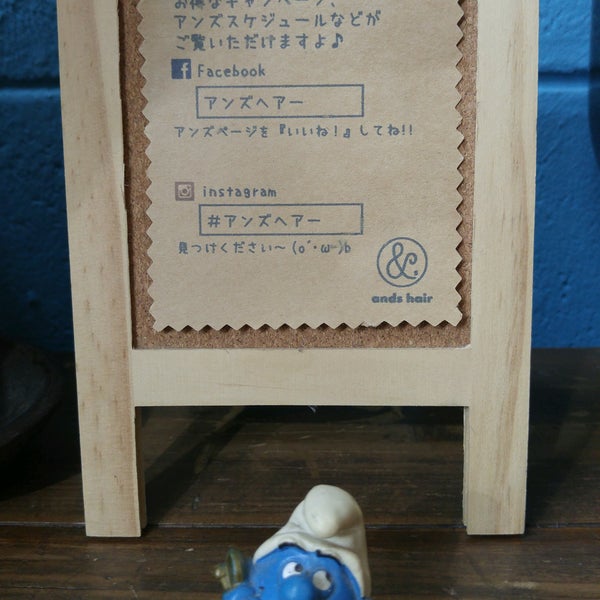 お得なキャンペーン、
アンズスケジュールなどが
ご覧いただけますよ♪
Facebook
アンズヘアー
アンズページを『いいね!』してね!!
instagram
#アンズヘアー
見つけください〜 (o´・ω-)b
&.
ands hair